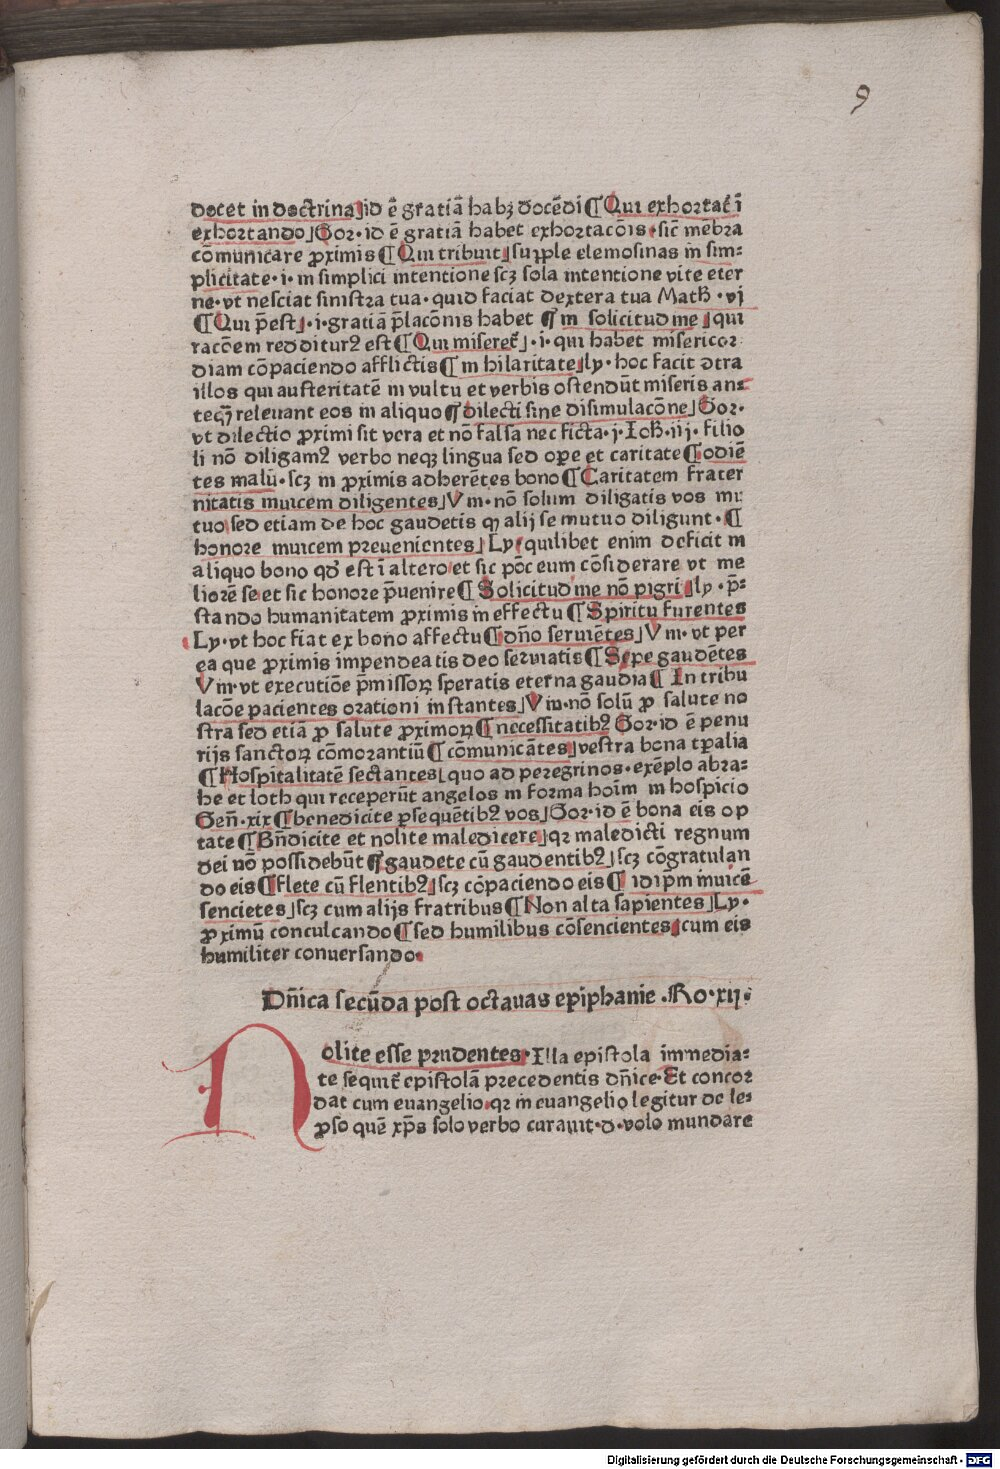 9
docet in doctrina⌋id ē gratiā habꝫ docēdi¶Qui exhortat̄ ī
exhortando⌋Gor·id ē gratiā habet exhortacōis·sic̄ mēbra
cōmunicare ꝓximis¶Qui tribuit⌋suꝑple elemosinas in sim-
plicitate·i·in simplici intentione scꝫ sola intentione vite eter
ne·vt nesciat sinistra tua·quid faciat dextera tua Math̄·vj
¶Qui p̄est⌋·i·gratiā p̄lacōnis habet ¶in solicitudine⌋qui
racōem redditurꝰ est¶Qui miseret̄⌋·i·qui habet misericor
diam cōpaciendo afflictis¶in hilaritate⌋ly·hoc facit ↄtra
illos qui austeritatē in vultu et verbis ostendūt miseris an-
teqꝫ releuant eos in aliquo¶dilecti sine disimulacōne⌋Gor·
vt dilectio ꝓximi sit vera et nō falsa nec ficta·j·Ioh̄·iij·filio
li nō diligamꝰ verbo neqꝫ lingua sed oꝑe et caritate¶odiē
tes malū·scꝫ in ꝓximis adherētes bono¶Caritatem frater
nitatis inuicem diligentes⌋Vin·nō solum diligatis vos mu
tuo sed etiam de hoc gaudetis qꝫ alij se mutuo diligunt·¶
honore inuicem preuenientes⌋Ly·quilibet enim deficit in
aliquo bono qd̄ est ī altero et sic pōc eum cōsiderare vt me
liorē se et sic honore p̄uenire¶Solicitudine nō pigri⌋ly·p̄-
stando humanitatem ꝓximis in effectu¶Spiritu furentes
Ly·vt hoc fiat ex bono affectu¶dn̄o seruiētes⌋Vin·vt per
ea que ꝓximis impendeatis deo seruiatis¶Spe gaudētes
Vin·vt executiōe p̄missoꝝ speratis eterna gaudia¶In tribu
lacōe pacientes orationi instantes⌋Vin·nō solū ꝓ salute no
stra sed etiā ꝓ salute ꝓximoꝝ¶necessitatibꝰ Gor·id ē penu
rijs sanctoꝝ cōmorantiū¶cōmunicātes⌋vestra bona tꝑalia
¶Hospitalitatē sectantes⌋quo ad peregrinos·exēplo abra-
he et loth qui receperūt angelos in forma hoīm in hospicio
Gen̄·xix¶benedicite ꝑsequētibꝰ vos⌋Gor·id ē bona eis op
tate¶Bn̄dicite et nolite maledicere⌋qꝛ maledicti regnum
dei nō possidebūt¶gaudete cū gaudentibꝰ⌋scꝫ cōgratulan
do eis¶flete cū flentibꝰ⌋scꝫ cōpaciendo eis¶idip̄m inuicē
sencietes⌋scꝫ cum alijs fratribus¶Non alta sapientes⌋Ly·
ꝓximū conculcando¶sed humilibus cōsencientes⌋cum eis
humiliter conuersando·
Dn̄ica secūda post octauas epiphanie·Ro·xij·
Nolite esse prudentes·Illa epistola immedia-
te sequit̄ epistolā precedentis dn̄ice·Et concor
dat cum euangelio qꝛ in euangelio legitur de le-
ꝓso quē xp̄s solo verbo curauit·d·volo mundare
Digitalisierung gefördert durch die Deutsche Forschungsgemeinschaft - DFG